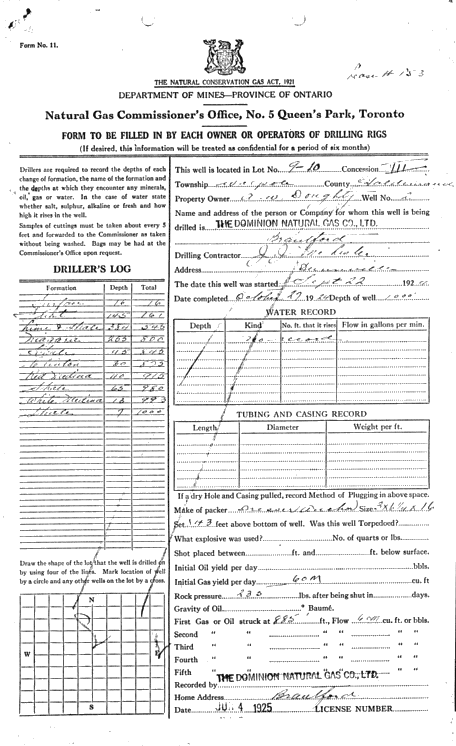 Form No. 11.
THE NATURAL CONSERVATION GAS ACT, 1921
DEPARTMENT OF MINES—PROVINCE OF ONTARIO
Natural Gas Commissioner's Office, No. 5 Queen's Park, Toronto
FORM TO BE FILLED IN BY EACH OWNER OR OPERATORS OF DRILLING RIGS
(If desired, this information will be treated as confidential for a period of six months)
Drillers are required to record the depths of each
change of formation, the name of the formation and
the depths at which they encounter any minerals,
oil, gas or water. In the case of water state
whether salt, sulphur, alkaline or fresh and how
high it rises in the well.
Samples of cuttings must be taken about every 5
feet and forwarded to the Commissioner as taken
without being washed. Bags may be had at the
Commissioner's Office upon request.
DRILLER'S LOG
Formation Depth Total
Surface 16 16
145 161
Lime & Shale 384 545
Niagara 255 800
45 845
Clinton 30 875
Red Medina 40 915
Shale 65 980
White Medina 13 993
Shale 7 1000
Draw the shape of the lot that the well is drilled on
by using four of the lines. Mark location of well
by a circle and any other wells on the lot by a cross.
N
W
E
S
This well is located in Lot No. 9-10 Concession III
Township County Haldimand
Property Owner Doughty Well No.
Name and address of the person or Company for whom this well is being
drilled is THE DOMINION NATURAL GAS CO., LTD.
Brantford
Drilling Contractor
Address Dunnville
The date this well was started Sept 22 192
Date completed October 29 1924 Depth of well 1000
WATER RECORD
Depth Kind No. ft. that it rises Flow in gallons per min.
No record
TUBING AND CASING RECORD
Length Diameter Weight per ft.
If a dry Hole and Casing pulled, record Method of Plugging in above space.
Make of packer Dresser Size 3x6¼x16
Set 143 feet above bottom of well. Was this well Torpedoed?
What explosive was used? No. of quarts or lbs.
Shot placed between ft. and ft. below surface.
Initial Oil yield per day bbls.
Initial Gas yield per day 60M cu. ft
Rock pressure 235 lbs. after being shut in days.
Gravity of Oil ° Baumé.
First Gas or Oil struck at 885 ft., Flow 60M cu. ft. or bbls.
Second " " " "
Third " " " "
Fourth " " " "
Fifth " " " "
Recorded by THE DOMINION NATURAL GAS CO., LTD.
Home Address Brantford
Date JUL 4 1925 LICENSE NUMBER